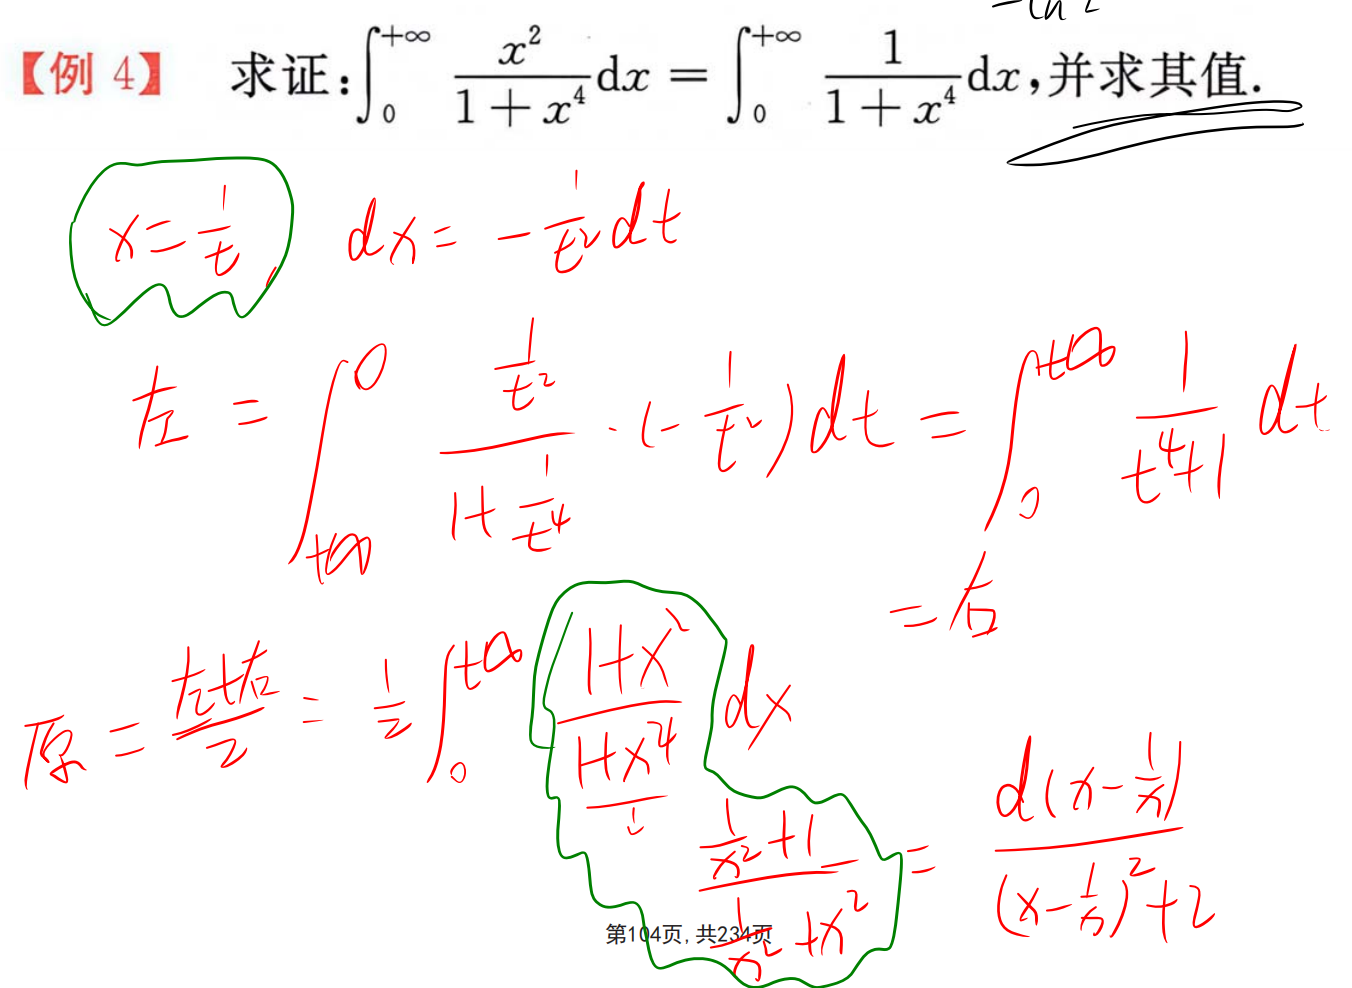 -ln 2
【例 4】 求证:∫₀^{+∞} x²/(1+x⁴) dx = ∫₀^{+∞} 1/(1+x⁴) dx,并求其值.
x = 1/t dx = - 1/t² dt
左 = ∫_{+∞}^0 (1/t²)/(1+1/t⁴) · (- 1/t²) dt = ∫₀^{+∞} 1/(t⁴+1) dt
= 右
原 = (左+右)/2 = 1/2 ∫₀^{+∞} (1+x²)/(1+x⁴) dx
(1/x²+1)/(1/x²+x²) = d(x-1/x)/((x-1/x)²+2)
第104页, 共234页